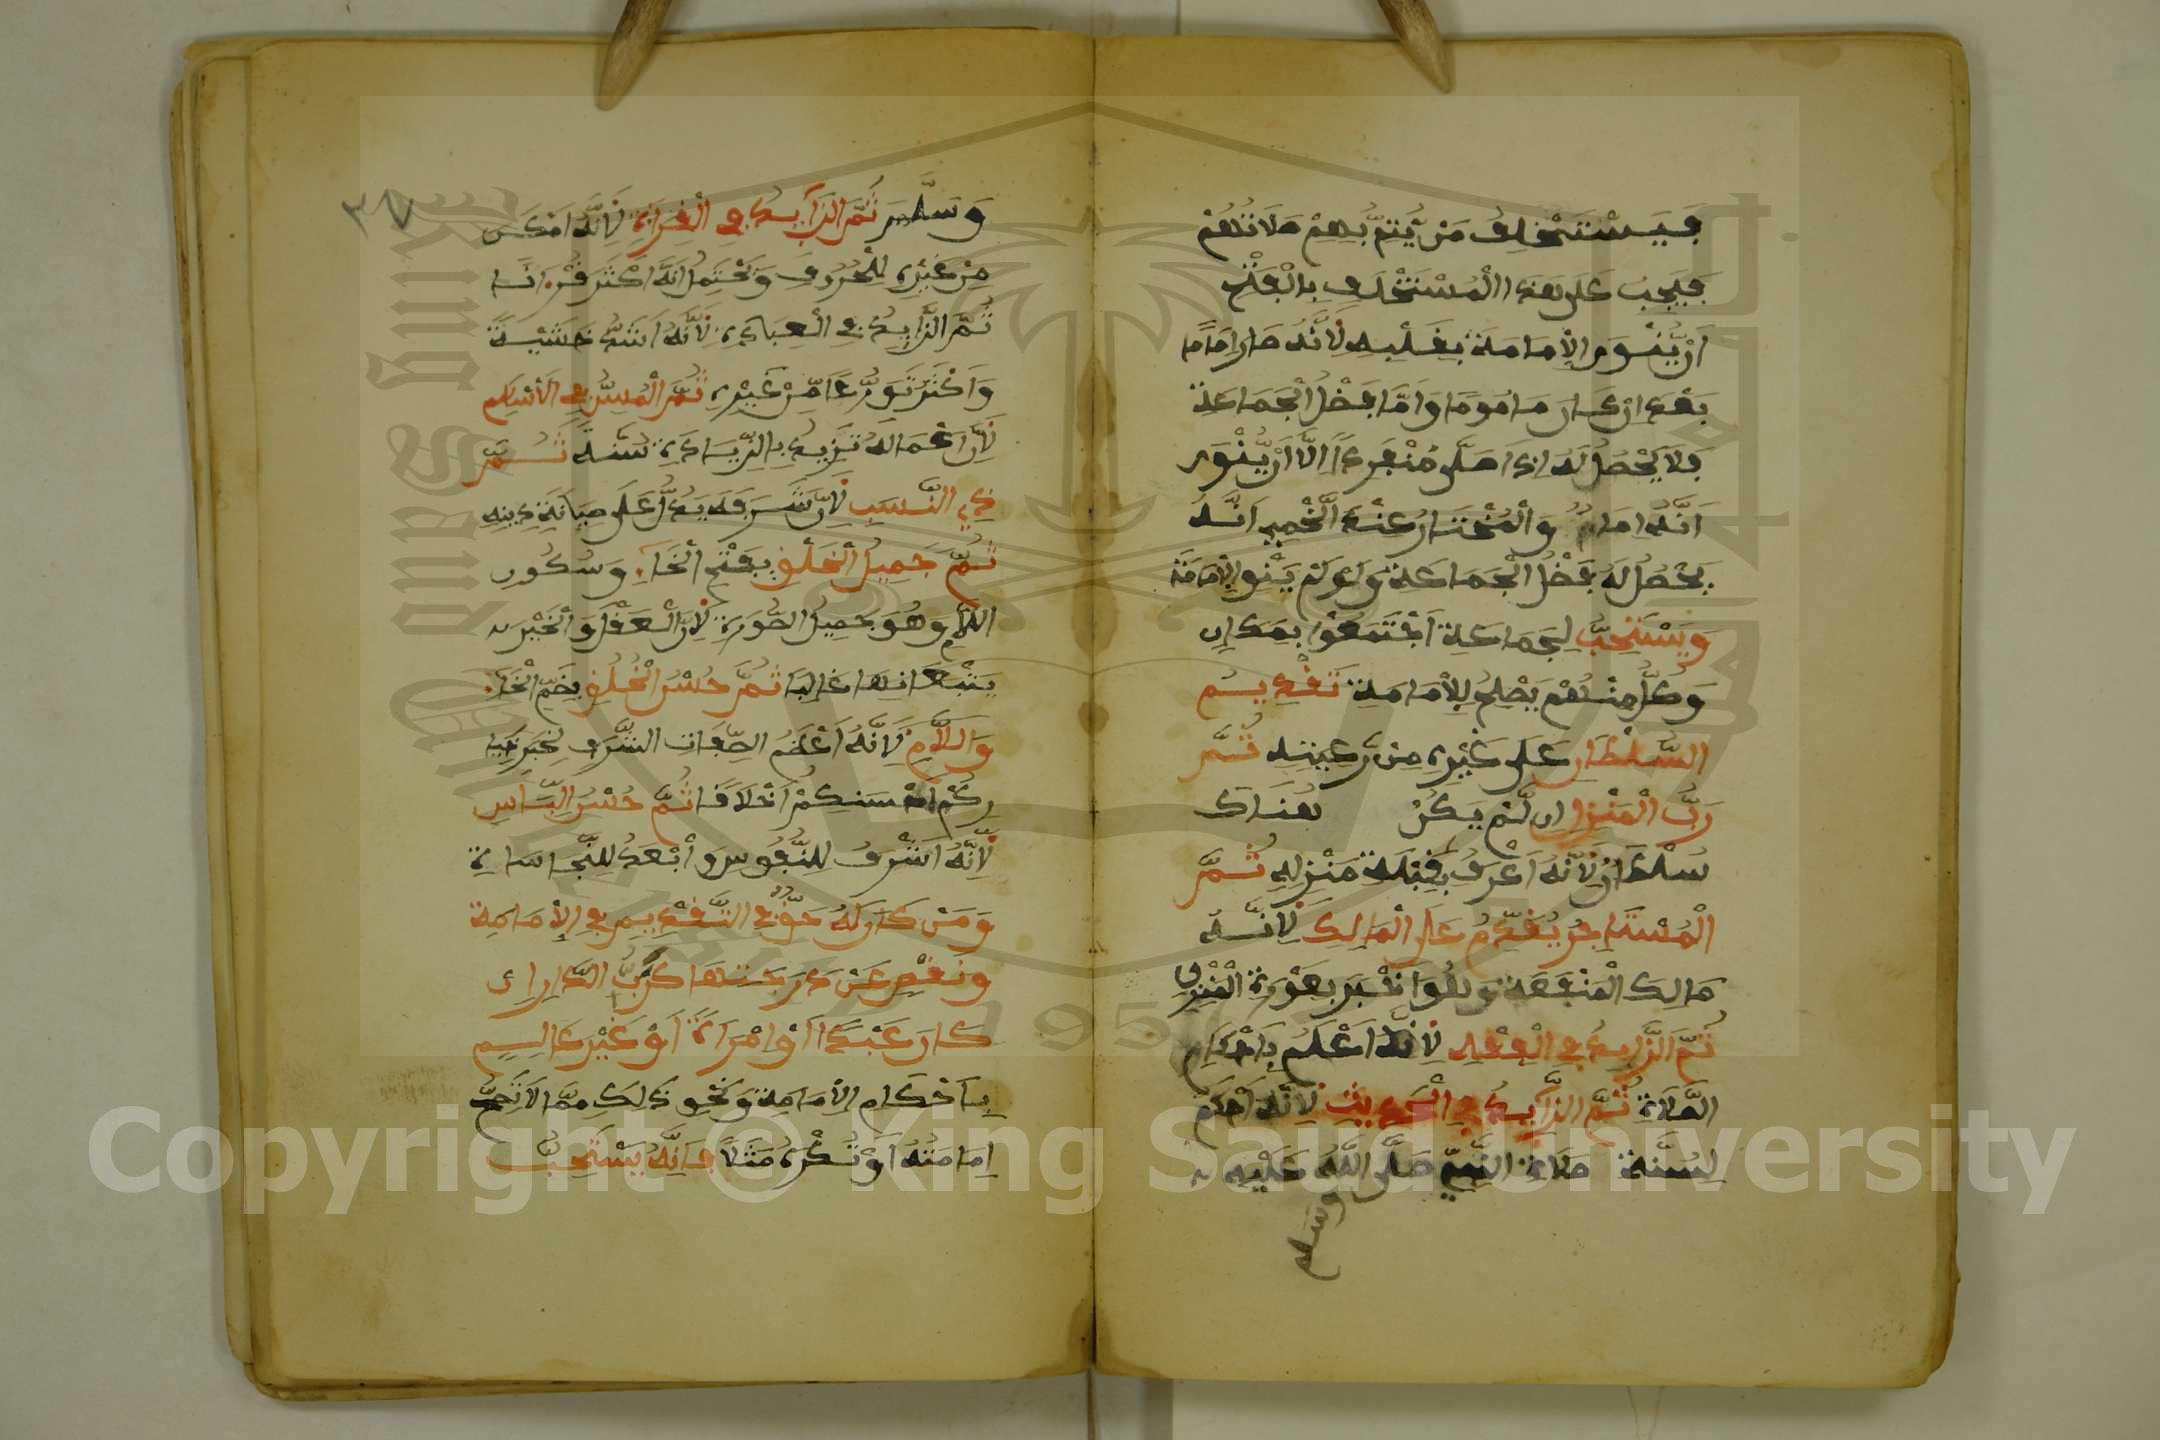 فَيَسْتَخْلِفُ مَنْ يُّتِمُّ بِهِمْ صَلَاتَهُمْ
فَيَجِبُ عَلَى هَذَا الْمُسْتَخْلَفِ بِالْفَتْحِ
أَنْ يَّنْوِيَ الْإِمَامَةَ بِقَلْبِهِ لِأَنَّهُ صَارَ إِمَامًا
بَعْدَ أَنْ كَانَ مَامُومًا وَأَمَّا فَضْلُ الْجَمَاعَةِ
فَلَا يَحْصُلُ لَهُ إِذَا صَلَّى مُنْفَرِدًا إِلَّا أَنْ يَّنْوِيَ
أَنَّهُ إِمَامٌ وَالْمُخْتَارُ عِنْدَ اللَّخْمِي أَنَّهُ
يَحْصُلُ لَهُ فَضْلُ الْجَمَاعَةِ وَلَوْ لَمْ يَنْوِ الْإِمَامَةَ
وَيُسْتَحَبُّ لِجَمَاعَةٍ اجْتَمَعُوا بِمَكَانٍ
وَكُلٌّ مِنْهُمْ يَصْلُحُ لِلْإِمَامَةِ تَقْدِيمُ
السُّلْطَانِ عَلَى غَيْرِهِ مِنْ رَّعِيَّتِهِ ثُمَّ
رَبُّ الْمَنْزِلِ إِن لَّمْ يَكُنْ هُنَاكَ
سُلْطَانٌ لِأَنَّهُ أَعْرَفُ بِقِبْلَةِ مَنْزِلِهِ ثُمَّ
الْمُسْتَاجِرُ يُقَدَّمُ عَلَى الْمَالِكِ لِأَنَّهُ
مَالِكُ الْمَنْفَعَةِ وَهُوَ أَخْبَرُ بِعَوْرَةِ الْمَنْزِلِ
ثُمَّ الزَّايِدُ فِي الْفِقْهِ لِأَنَّهُ أَعْلَمُ بِأَحْكَامِ
الصَّلَاةِ ثُمَّ الزَّايِدُ فِي الْحَدِيثِ لِأَنَّهُ أَحْكَمُ
لِسُنَّةِ صَلَاةِ النَّبِيِّ صَلَّى اللَّهُ عَلَيْهِ
وسلم
٣٧
وَسَلَّمَ ثُمَّ الزَّايِدُ فِي الْقِرَاءَةِ لِأَنَّهُ أَمْكَنُ
مِنْ غَيْرِهِ لِلْحُرُوفِ وَيَحْتَمِلُ أَنَّهُ أَكْثَرُ قُرْءَانًا
ثُمَّ الزَّايِدُ فِي الْعِبَادَةِ لِأَنَّهُ أَشَدُّ خَشْيَةً
وَأَكْثَرُ تَوَرُّعًا مِّنْ غَيْرِهِ ثُمَّ الْمُسِنُّ فِي الْإِسْلَامِ
لِأَنَّ أَعْمَالَهُ تَزِيدُ بِالزِّيَادَةِ سِنِّهِ ثُمَّ
ذِي النَّسَبِ لِأَنَّ شَرَفَهُ يَدُلُّ عَلَى صِيَانَةِ دِينِهِ
ثُمَّ جَمِيلُ الْخَلْقِ بِفَتْحِ الْخَاءِ وَسُكُونِ
اللَّامِ وَهُوَ جَمِيلُ الصُّورَةِ لِأَنَّ الْعَقْلَ وَالْخَيْرَ
يَتْبَعَانِهَا غَالِبًا ثُمَّ حُسْنُ الْخُلُقِ بِضَمِّ الْخَاءِ
وَاللَّامِ لِأَنَّهُ أَعْظَمُ الصِّفَاتِ الشَّرَفِ لِخَبَرِ خِيَا
رِكُمْ أَحْسَنِكُمْ أَخْلَاقًا ثُمَّ حُسْنُ اللِّبَاسِ
لِأَنَّهُ أَشْرَفُ لِلنُّفُوسِ وَأَبْعَدُ لِلنَّجَاسَاةِ
وَمَنْ كَانَ لَهُ حَقٌّ فِي التَّقْدِيمِ فِي الْإِمَامَةِ
وَنَقْصٍ عَنْ دَرَجَتِهَا كَرَبِّ الدَّارِ إِن
كَانَ عَبْدًا أَوْ إِمْرَأَةً أَوْ غَيْرَ عَالِمٍ
بِأَحْكَامِ الْإِمَامَةِ وَنَحْوِ ذَلِكَ مِمَّا لَا تَصِحُّ
إِمَامَتُهُ أَوْ تُكْرَهُ مَثَلًا فَإِنَّهُ يُسْتَحَبُّ
King Saud University
1957
Copyright © King Saud University